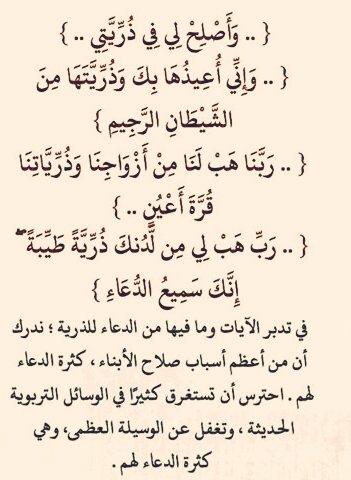 { .. وَأَصْلِحْ لِي فِي ذُرِّيَّتِي .. }
{ .. وَإِنِّي أُعِيذُهَا بِكَ وَذُرِّيَّتَهَا مِنَ
الشَّيْطَانِ الرَّجِيمِ }
{ .. رَبَّنَا هَبْ لَنَا مِنْ أَزْوَاجِنَا وَذُرِّيَّاتِنَا
قُرَّةَ أَعْيُنٍ .. }
{ .. رَبِّ هَبْ لِي مِن لَّدُنكَ ذُرِّيَّةً طَيِّبَةً ۖ
إِنَّكَ سَمِيعُ الدُّعَاءِ }
في تدبر الآيات وما فيها من الدعاء للذرية ؛ ندرك
أن من أعظم أسباب صلاح الأبناء ، كثرة الدعاء
لهم . احترس أن تستغرق كثيرًا في الوسائل التربوية
الحديثة ، وتغفل عن الوسيلة العظمى، وهي
كثرة الدعاء لهم .